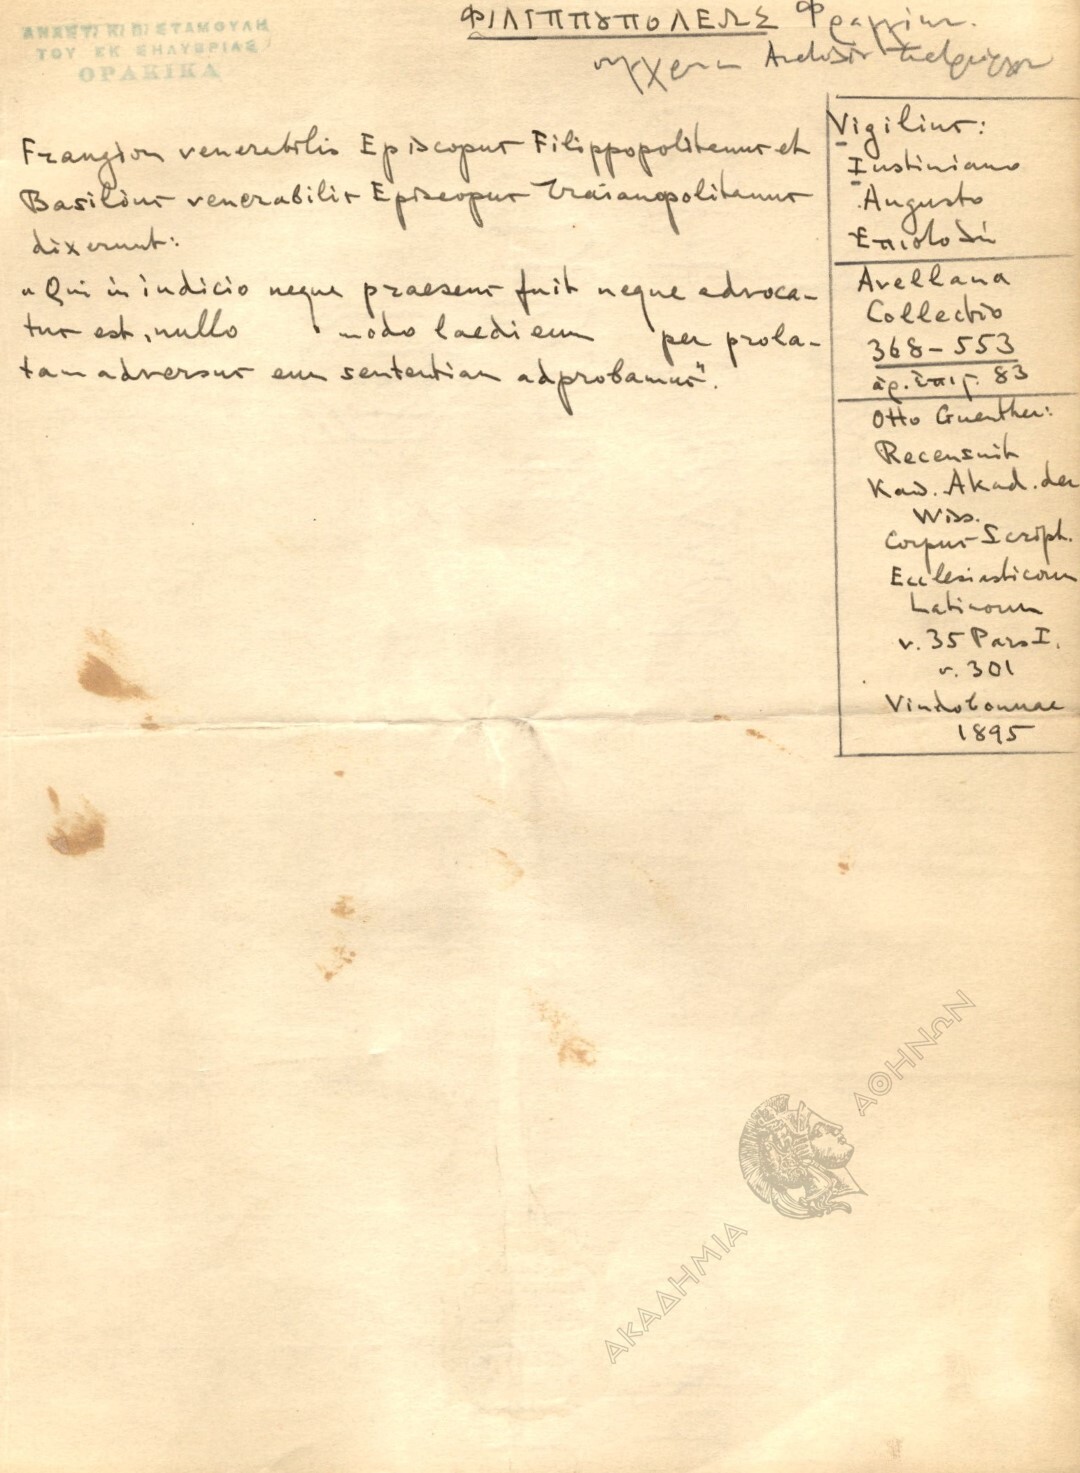 ΑΝΑΣΤ. Κ. Π. ΣΤΑΜΟΥΛΗ
ΤΟΥ ΕΚ ΣΗΛΥΒΡΙΑΣ
ΘΡΑΚΙΚΑ
ΦΙΛΙΠΠΟΥΠΟΛΕΩΣ Φραγγίων.
Frangion venerabilis Episcopus Filippopolitanus et
Basilius venerabilis Episcopus Traianopolitanus
dixerunt:
"Qui in iudicio neque praesens fuit neque advoca-
tus est, nullo modo laedi eum per prola-
tam adversus eum sententiam adprobamus".
Vigilius:
Iustiniano
Augusto
Ἐπιστολὴ
Avellana
Collectio
368-553
ἀρ. ἐπις. 83
Otto Guenther:
Recensuit
Kais. Akad. der
Wiss.
Corpus Script.
Ecclesiasticorum
Latinorum
v. 35 Pars I.
σ. 301
Vindobonnae
1895
ΑΚΑΔΗΜΙΑ ΑΘΗΝΩΝ